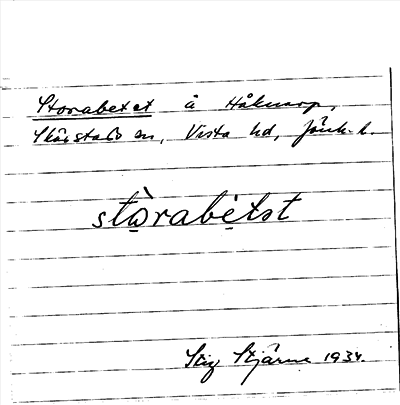 Storabetet å Håknarp,
Skärstads sn, Vista hd, Jönk. l.
stòrabètst
Stig Stjärne 1934.